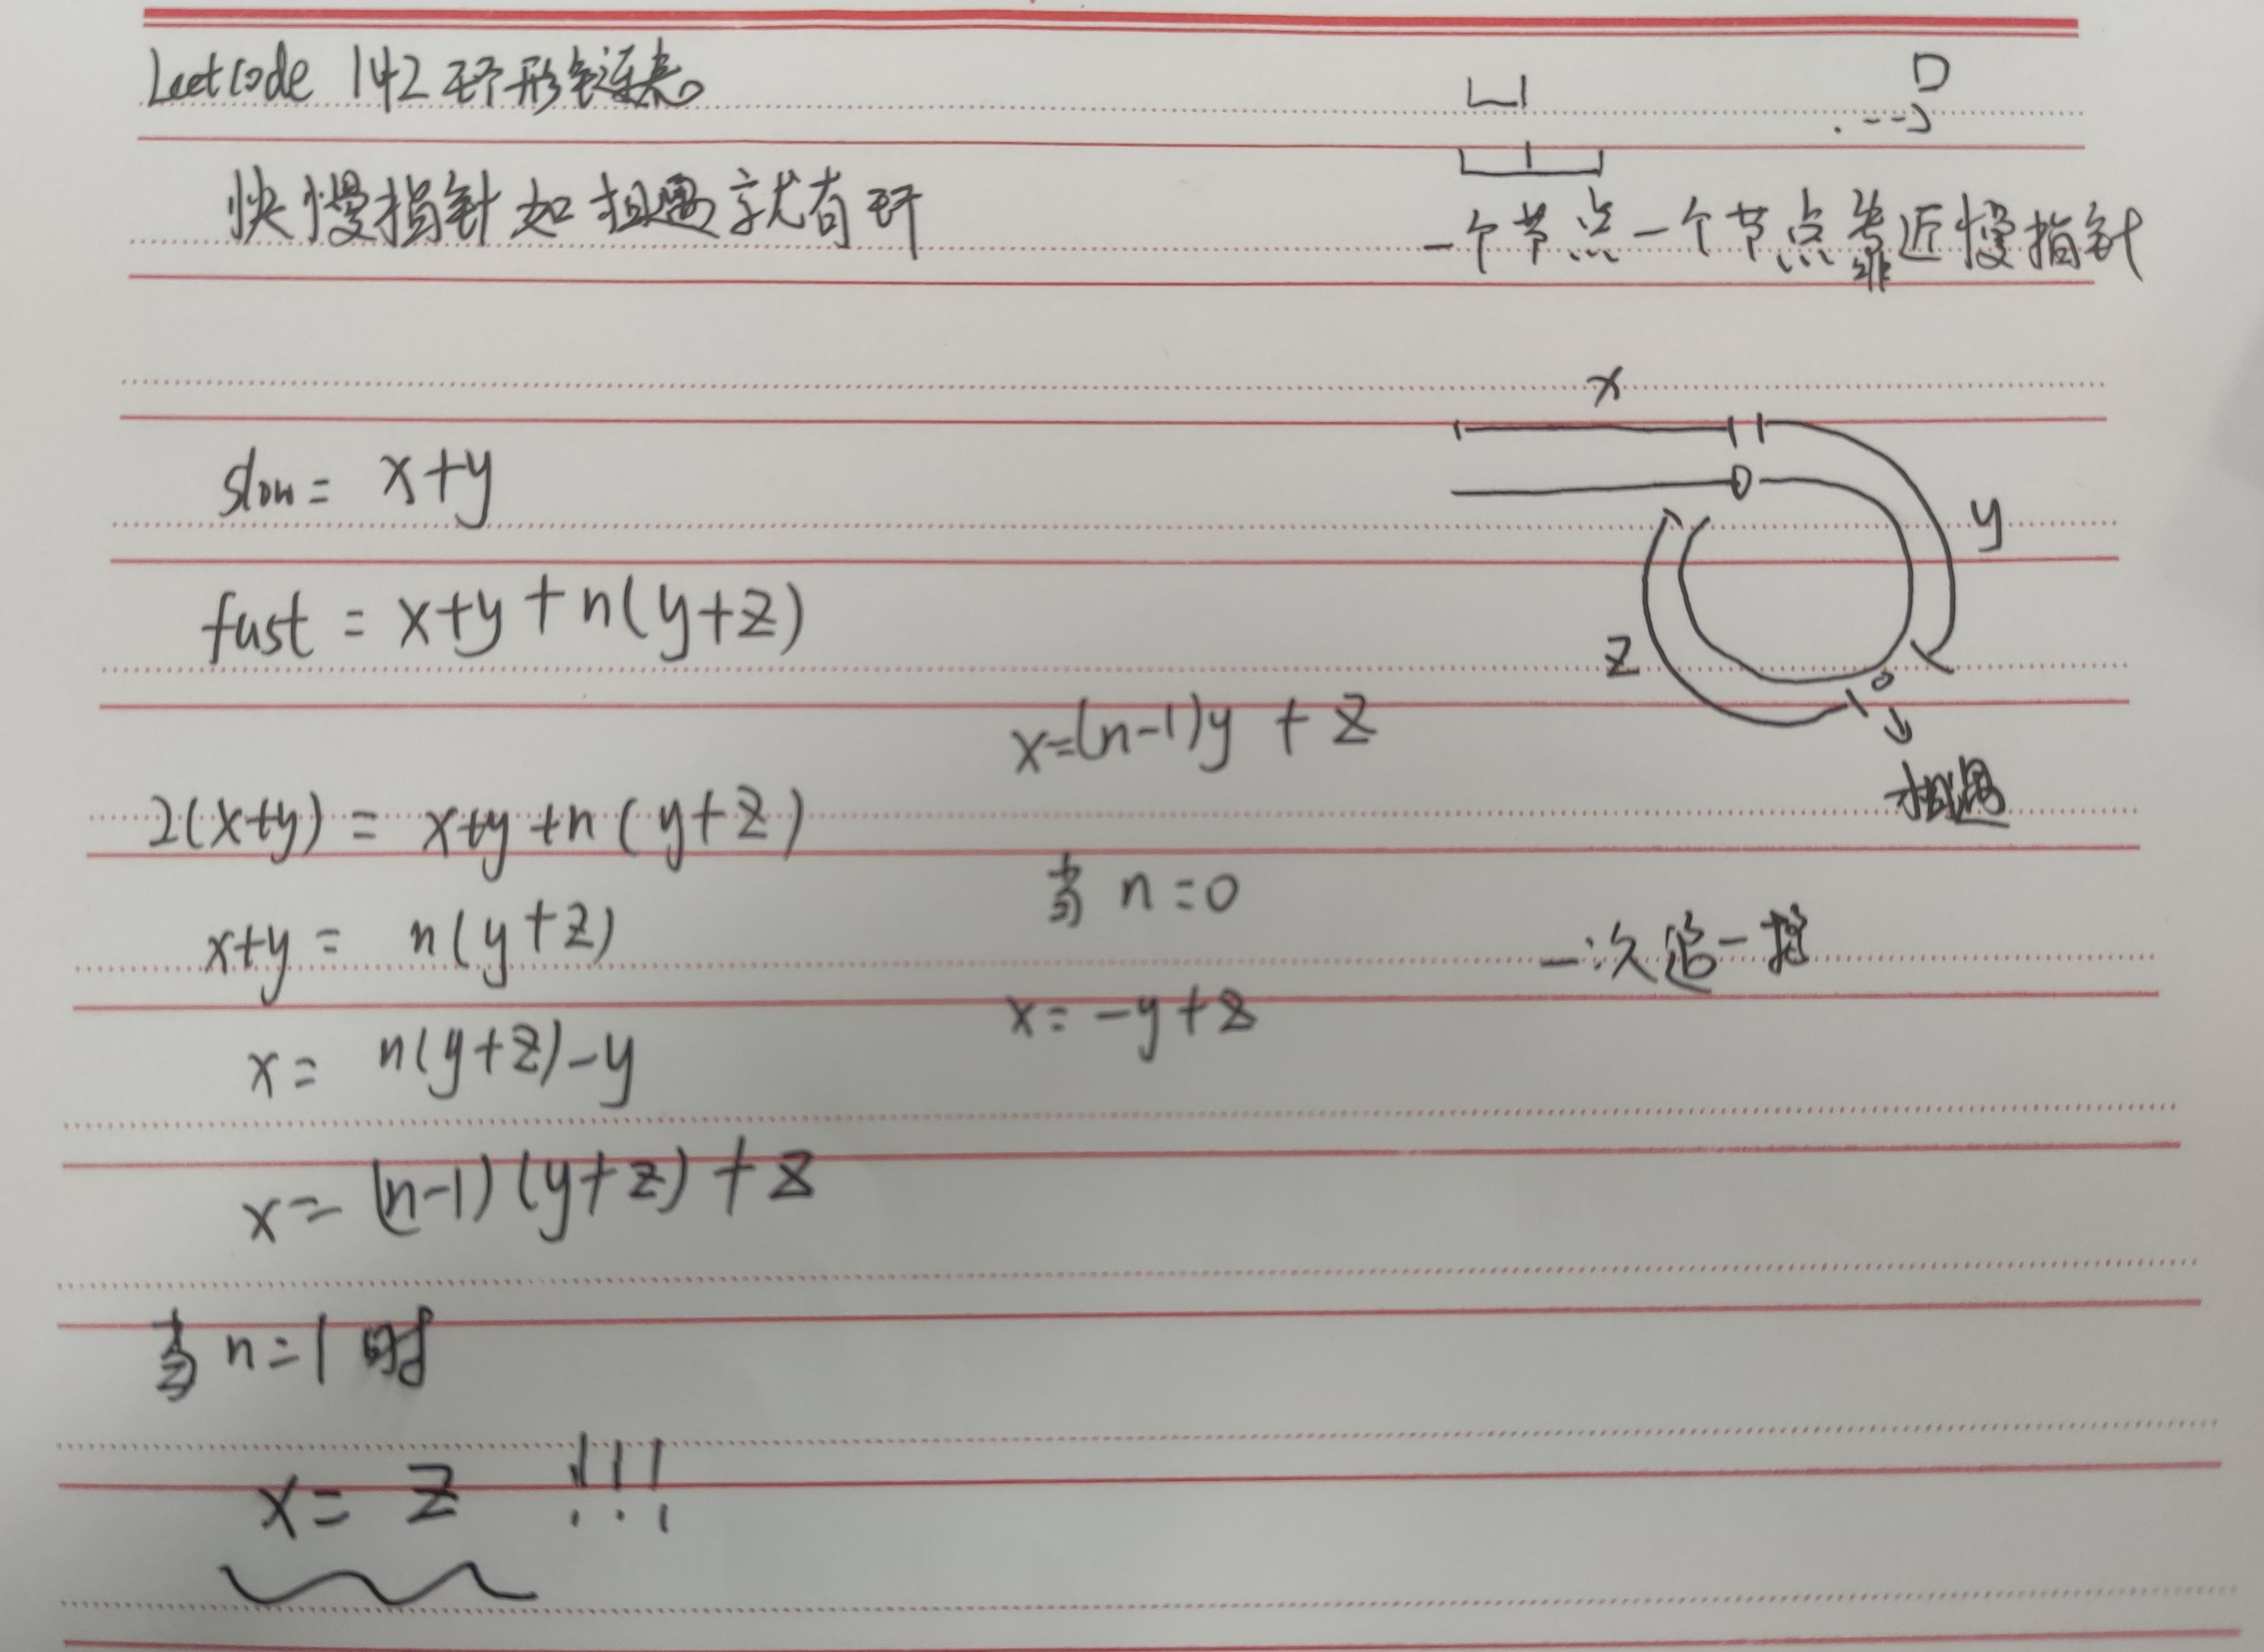 Leetcode 142 环形链表。
快慢指针如相遇就有环
一个节点一个节点靠近慢指针
x
slow = x+y
y
fast = x+y+n(y+z)
z
相遇
x=(n-1)y + z
2(x+y) = x+y+n(y+z)
当 n=0
x+y = n(y+z)
一次追一
x= -y+z
x= n(y+z)-y
x= (n-1)(y+z)+z
当 n=1 时
x= z !!!